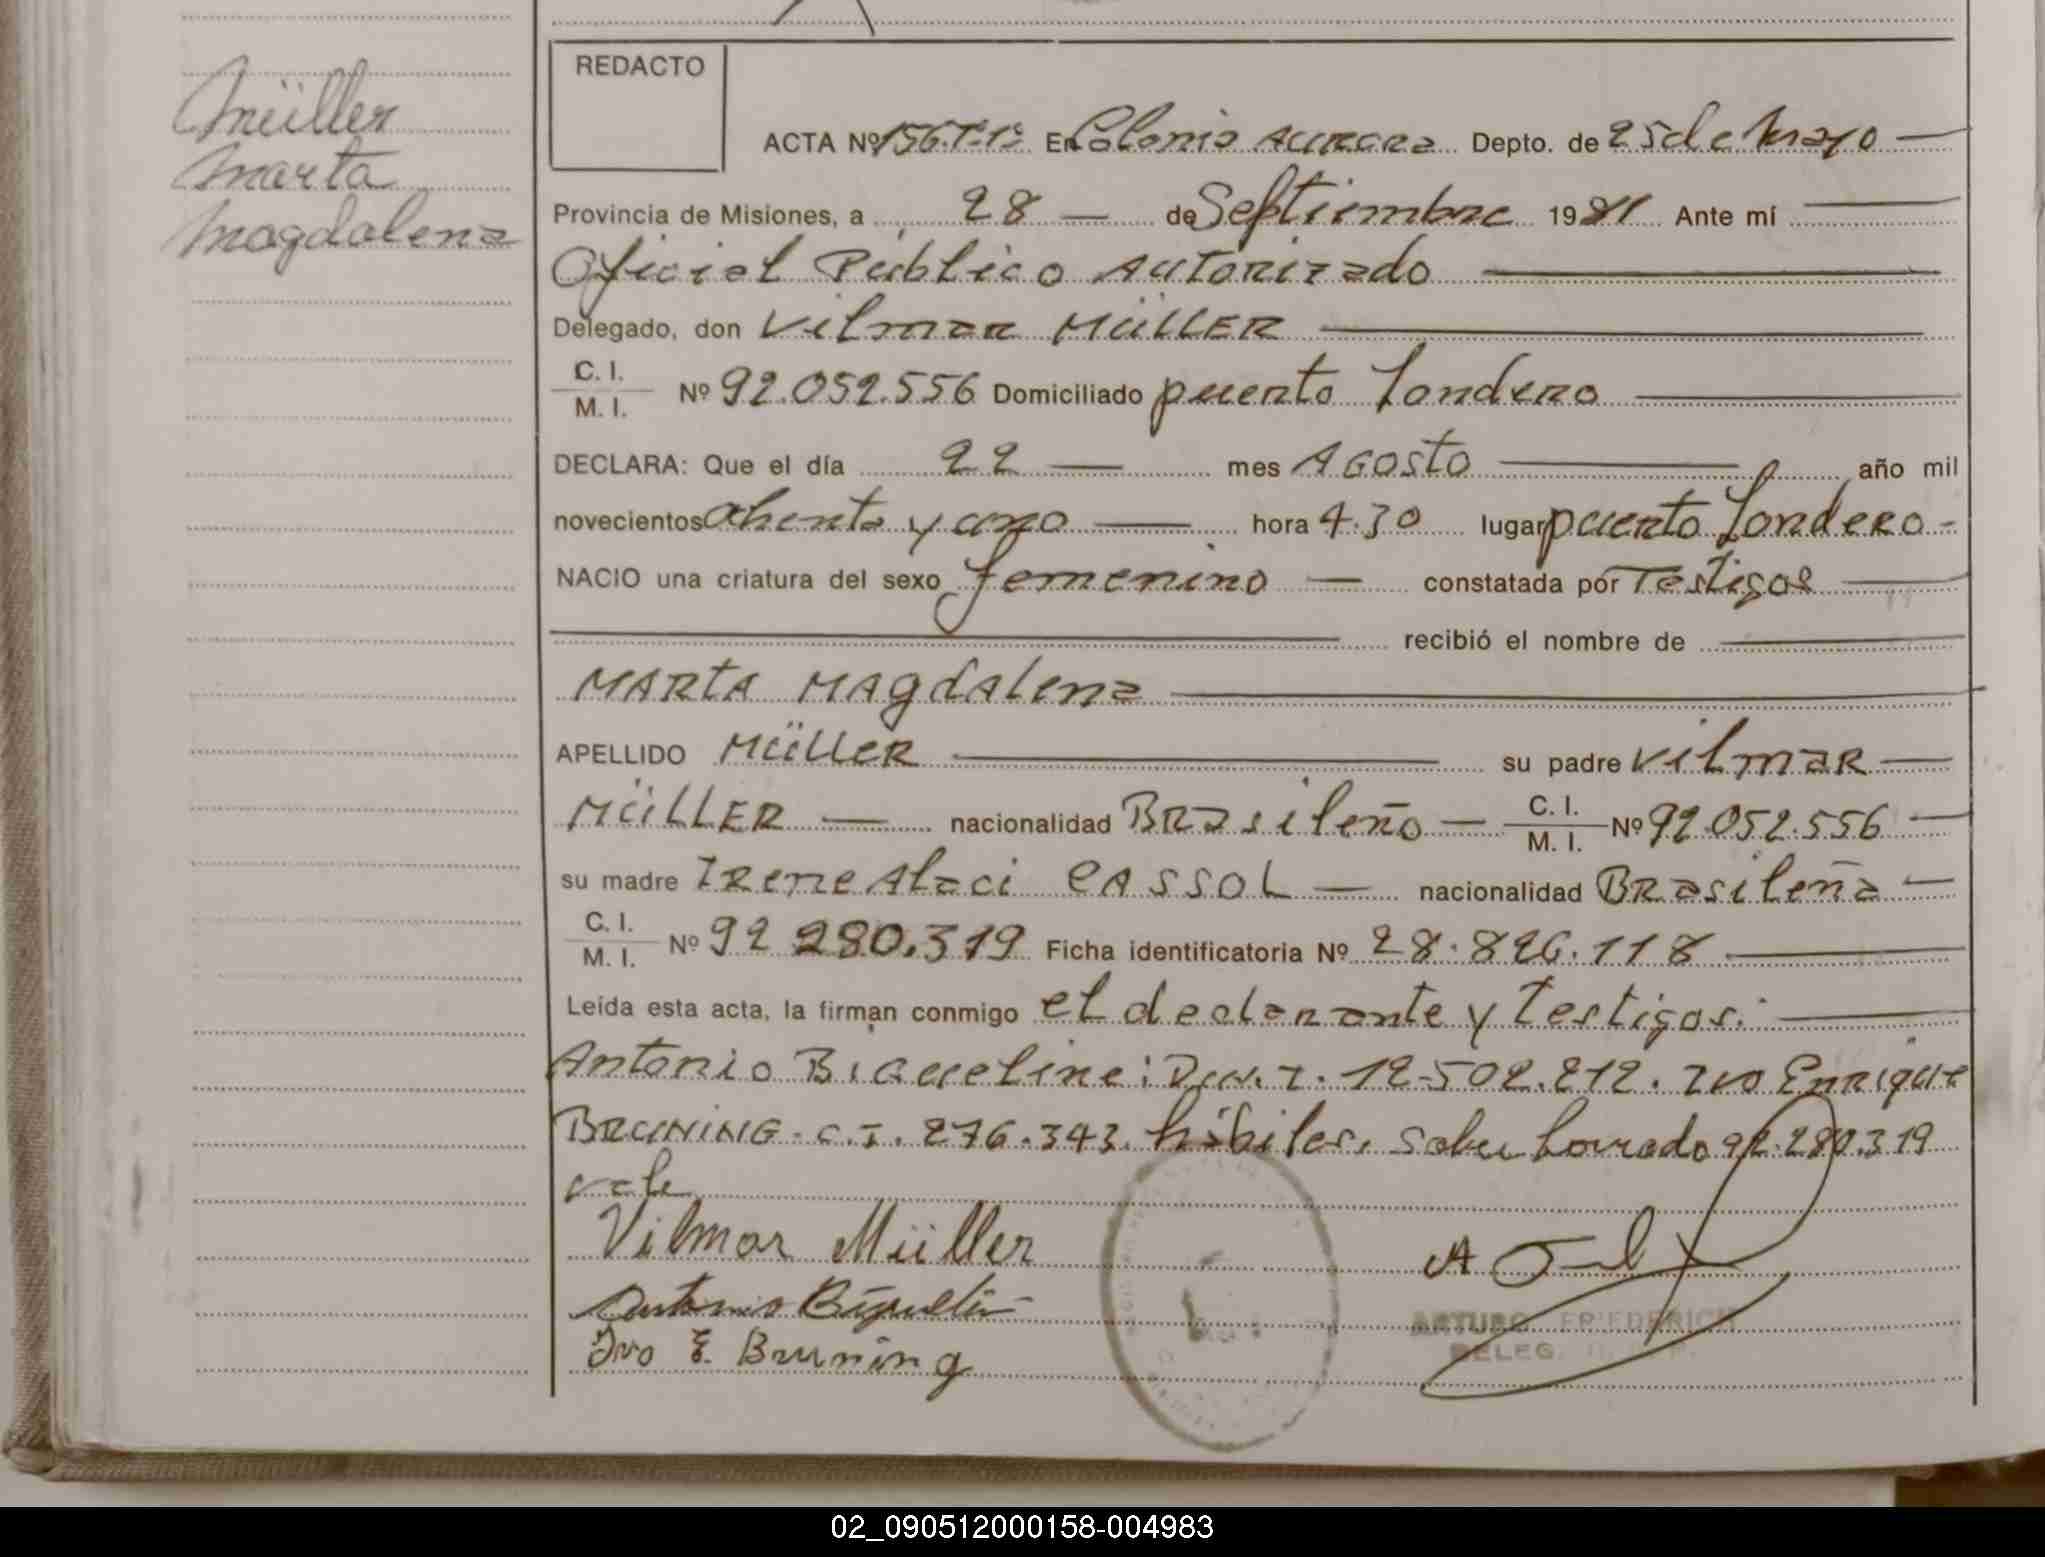 Müller
Marta
Magdalena
REDACTO
ACTA Nº 156.T.1º En Colonia Aurora Depto. de 25 de Mayo
Provincia de Misiones, a 28 de Septiembre 1981 Ante mí
Oficial Público Autorizado
Delegado, don Vilmar MÜLLER
C. I.
M. I. Nº 92.052.556 Domiciliado puerto Londero
DECLARA: Que el día 22 mes AGOSTO año mil
novecientos ochenta y uno hora 4.30 lugar puerto Londero
NACIO una criatura del sexo femenino constatada por Testigos
recibió el nombre de
MARTA MAgdAlena
APELLIDO MÜLLER su padre Vilmar
MÜLLER nacionalidad BRasileño C. I.
M. I. Nº 92.052.556
su madre Irene Alaci CASSOL nacionalidad BRasileña
C. I.
M. I. Nº 92 280.319 Ficha identificatoria Nº 28.826.118
Leída esta acta, la firman conmigo el declarante y Testigos:
Antonio Biqueline: D.N.I. 12.502.212. Ivo Enrique
BRUNING. C.I. 276.343. hábiles. sobre borrado 92.280.319
vale
Vilmar Müller
Antonio
Ivo E. Bruning
ARTURO FRIEDERICH
DELEG.
02_090512000158-004983